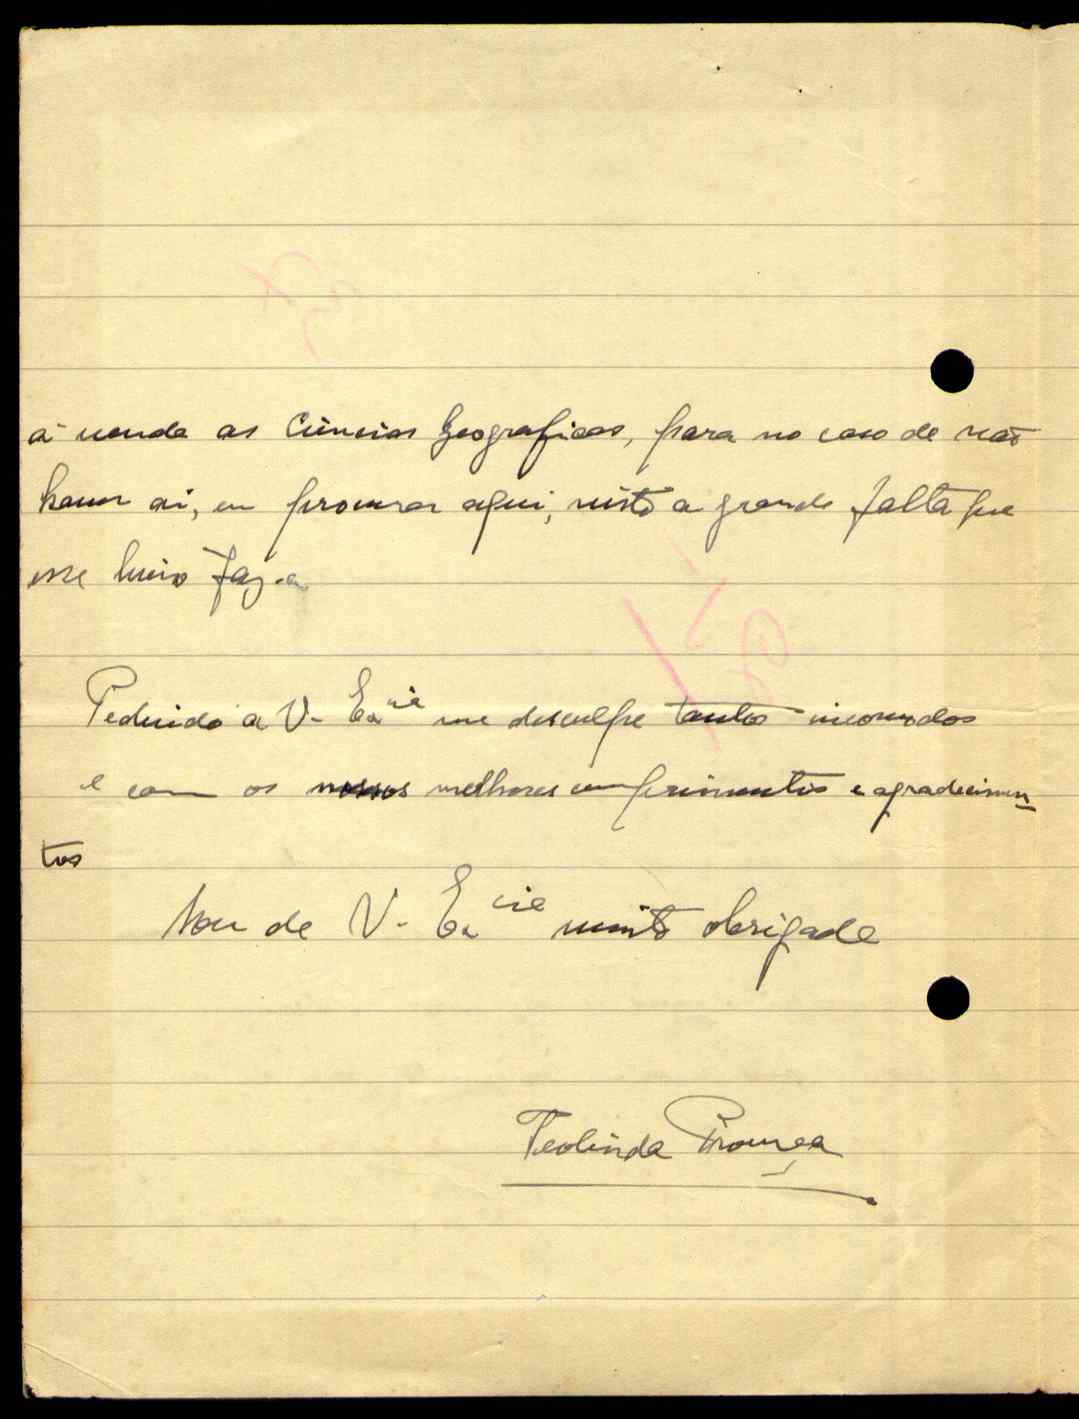 à venda as Ciencias Geograficas, para no caso de não
haver aí, eu procurar aqui, visto a grande falta que
esse livro faz.
Pedindo a V. Ex.cia me desculpe tantos incomodos
e com os nossos melhores cumprimentos e agradecimen-
tos
Sou de V. Ex.cia muito obrigada
Teolinda Proença